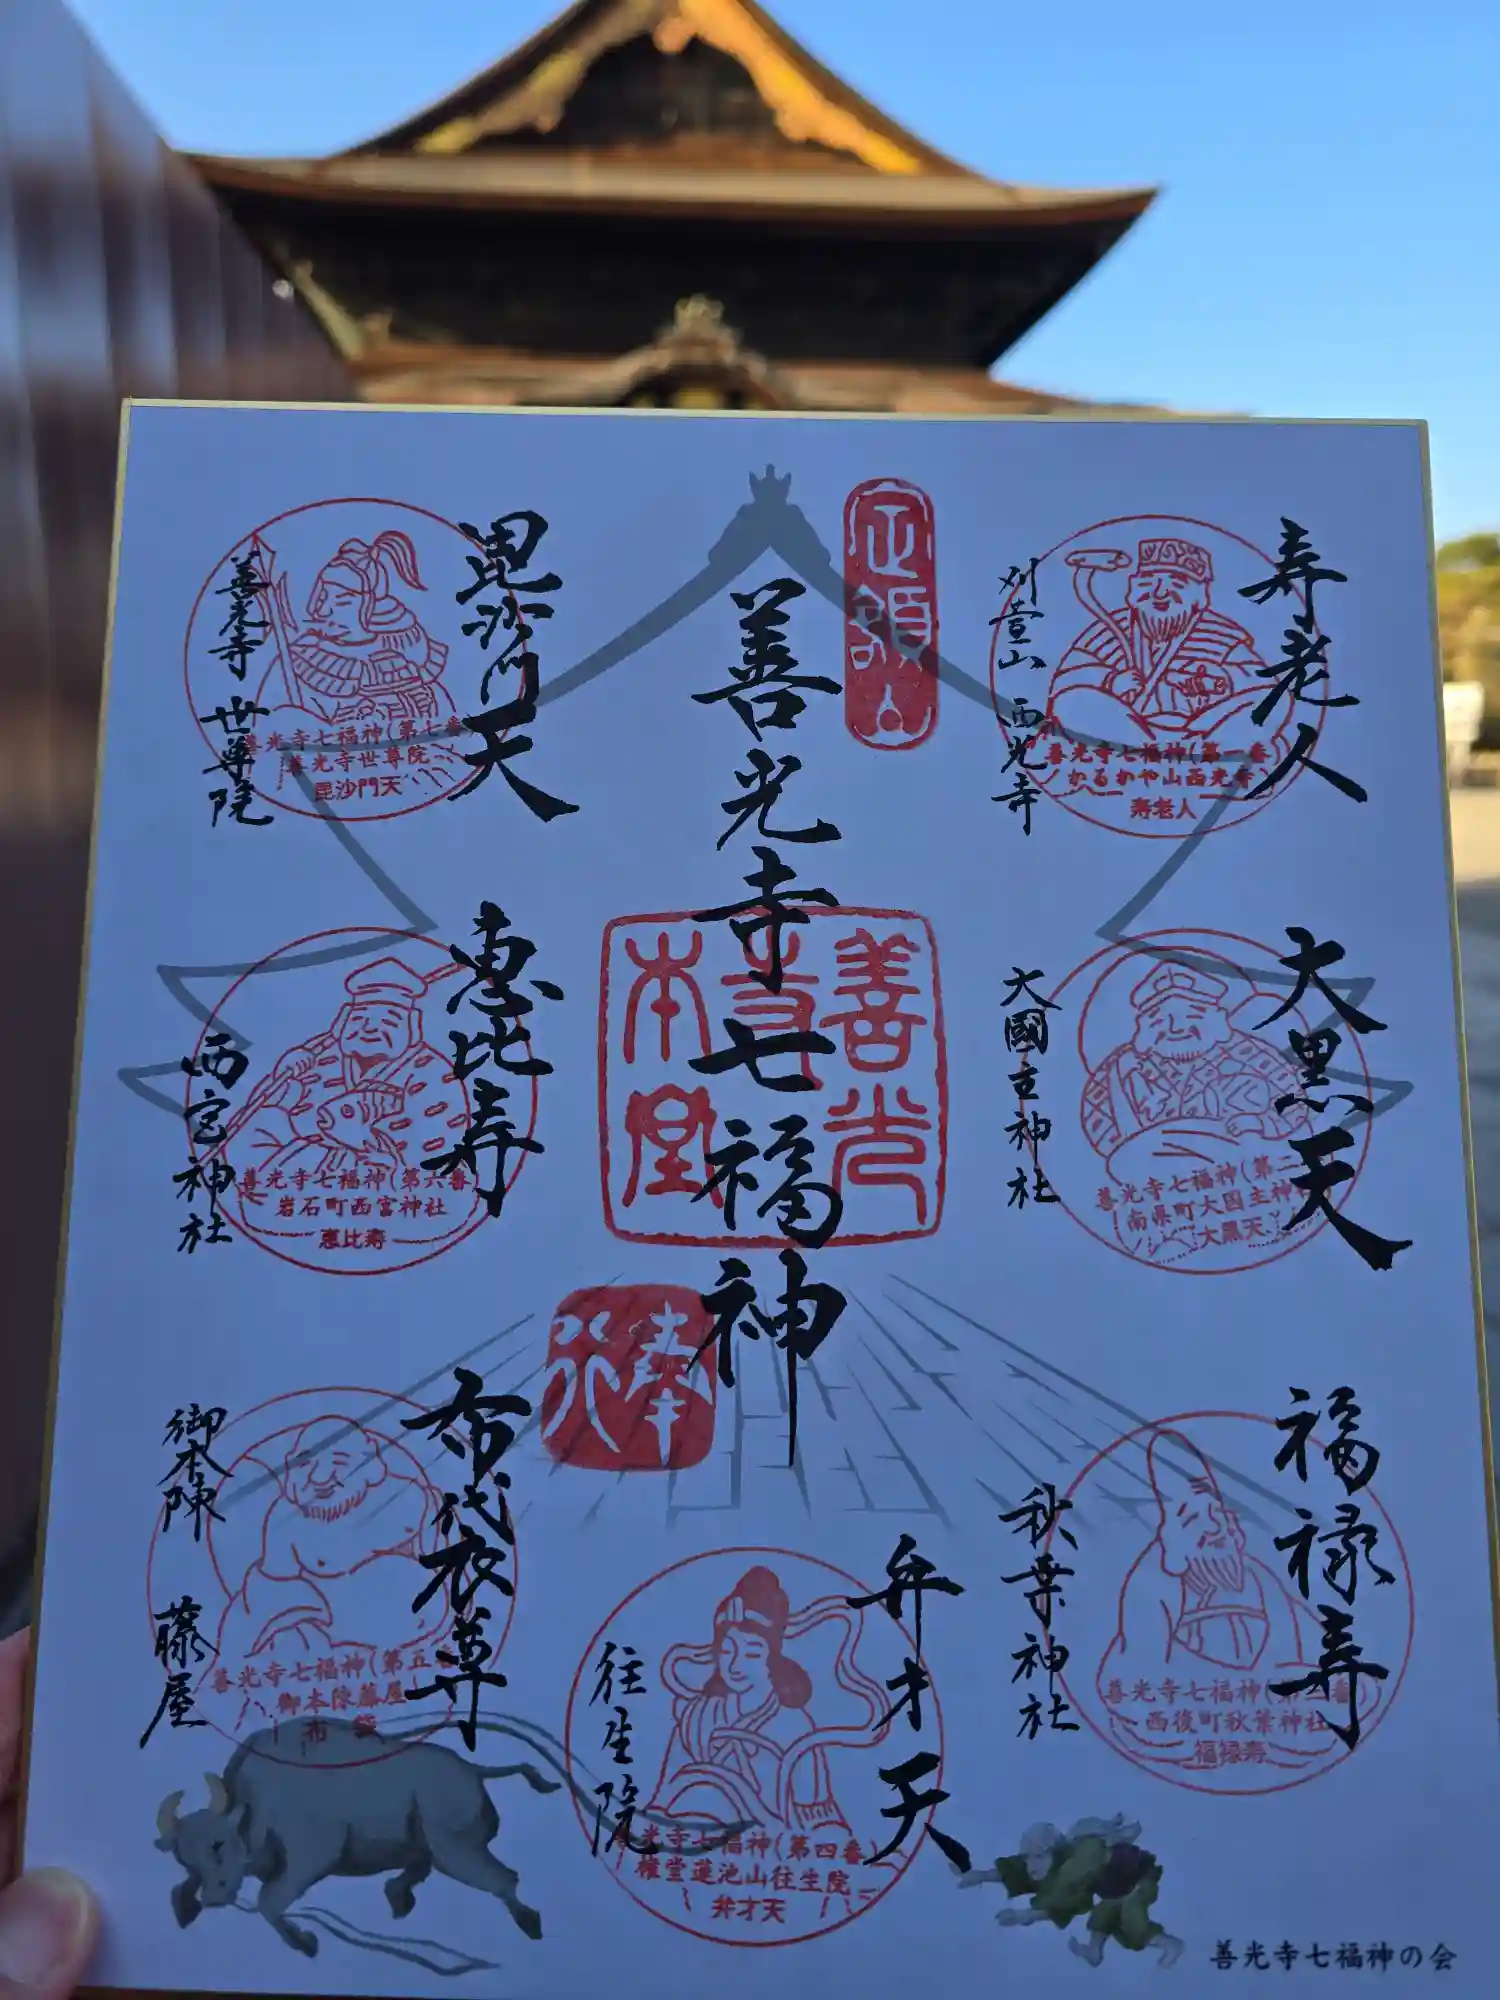 寿老人
刈萱山 西光寺
善光寺七福神(第一番)
かるかや山西光寺
寿老人
大黒天
大國主神社
善光寺七福神(第二
南県町大国主神社
大黒天
福禄寿
秋葉神社
善光寺七福神(第三番)
西後町秋葉神社
福禄寿
善光寺七福神
善光寺
本堂
奉拝
弁才天
往生院
光寺七福神(第四番)
権堂蓮池山往生院
弁才天
毘沙門天
善光寺 世尊院
善光寺七福神(第七番
善光寺世尊院
毘沙門天
恵比寿
西宮神社
善光寺七福神(第六番)
岩石町西宮神社
恵比寿
布袋尊
御本陳 藤屋
善光寺七福神(第五番
御本陳藤屋
布 袋
善光寺七福神の会